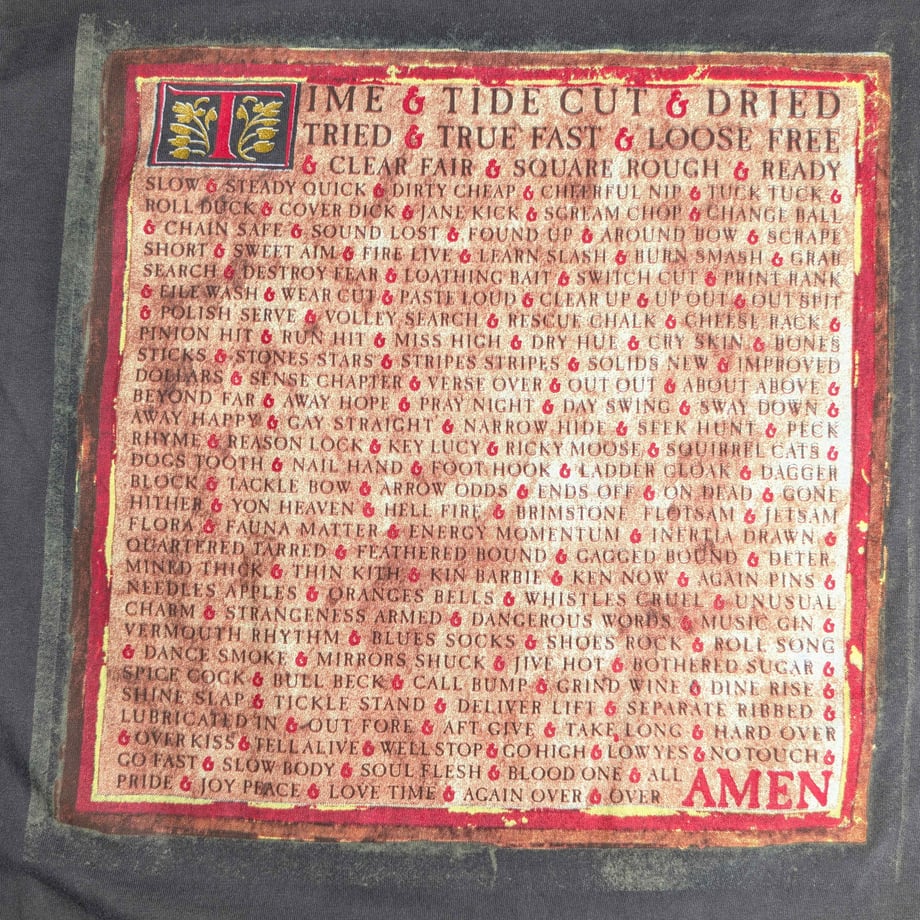 TIME & TIDE CUT & DRIED
TRIED & TRUE FAST & LOOSE FREE
& CLEAR FAIR & SQUARE ROUGH & READY
SLOW & STEADY QUICK & DIRTY CHEAP & CHEERFUL NIP & TUCK TUCK &
ROLL DUCK & COVER DICK & JANE KICK & SCREAM CHOP & CHANGE BALL
& CHAIN SAFE & SOUND LOST & FOUND UP & AROUND BOW & SCRAPE
SHORT & SWEET AIM & FIRE LIVE & LEARN SLASH & BURN SMASH & GRAB
SEARCH & DESTROY FEAR & LOATHING BAIT & SWITCH CUT & PRINT RANK
& FILE WASH & WEAR CUT & PASTE LOUD & CLEAR UP & UP OUT & OUT SPIT
& POLISH SERVE & VOLLEY SEARCH & RESCUE CHALK & CHEESE RACK &
PINION HIT & RUN HIT & MISS HIGH & DRY HUE & CRY SKIN & BONES
STICKS & STONES STARS & STRIPES STRIPES & SOLIDS NEW & IMPROVED
DOLLARS & SENSE CHAPTER & VERSE OVER & OUT OUT & ABOUT ABOVE &
BEYOND FAR & AWAY HOPE & PRAY NIGHT & DAY SWING & SWAY DOWN &
AWAY HAPPY & GAY STRAIGHT & NARROW HIDE & SEEK HUNT & PECK
RHYME & REASON LOCK & KEY LUCY & RICKY MOOSE & SQUIRREL CATS &
DOGS TOOTH & NAIL HAND & FOOT HOOK & LADDER CLOAK & DAGGER
BLOCK & TACKLE BOW & ARROW ODDS & ENDS OFF & ON DEAD & GONE
HITHER & YON HEAVEN & HELL FIRE & BRIMSTONE FLOTSAM & JETSAM
FLORA & FAUNA MATTER & ENERGY MOMENTUM & INERTIA DRAWN &
QUARTERED TARRED & FEATHERED BOUND & GAGGED BOUND & DETER
MINED THICK & THIN KITH & KIN BARBIE & KEN NOW & AGAIN PINS &
NEEDLES APPLES & ORANGES BELLS & WHISTLES CRUEL & UNUSUAL
CHARM & STRANGENESS ARMED & DANGEROUS WORDS & MUSIC GIN &
VERMOUTH RHYTHM & BLUES SOCKS & SHOES ROCK & ROLL SONG
& DANCE SMOKE & MIRRORS SHUCK & JIVE HOT & BOTHERED SUGAR &
SPICE COCK & BULL BECK & CALL BUMP & GRIND WINE & DINE RISE &
SHINE SLAP & TICKLE STAND & DELIVER LIFT & SEPARATE RIBBED &
LUBRICATED IN & OUT FORE & AFT GIVE & TAKE LONG & HARD OVER
& OVER KISS & TELL ALIVE & WELL STOP & GO HIGH & LOW YES & NO TOUCH &
GO FAST & SLOW BODY & SOUL FLESH & BLOOD ONE & ALL
PRIDE & JOY PEACE & LOVE TIME & AGAIN OVER & OVER AMEN